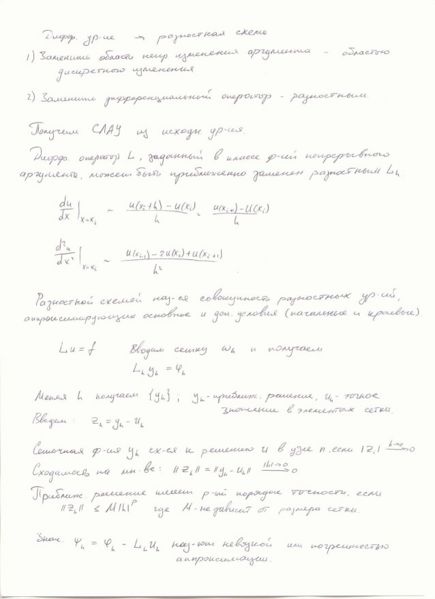 Дифф. ур-ие ⇝ разностная схема
1) Заменить область непр изменения аргумента - областью
дискретного изменения
2) Заменить дифференциальный оператор - разностным
Получим СЛАУ из исходн ур-ия
Дифф. оператор L, заданный в классе ф-ий непрерывного
аргумента, может быть приближенно заменен разностным L_h
du/dx |_{x=x_i} ~ (u(x_i+h) - u(x_i))/h = (u(x_{i+1}) - u(x_i))/h
d²u/dx² |_{x=x_i} ~ (u(x_{i-1}) - 2u(x_i) + u(x_{i+1}))/h²
Разностной схемой наз-ся совокупность разностных ур-ий,
аппроксимирующих основное и доп. условия (начальные и краевые)
Lu = f Вводим сетку ω_h и получаем
L_h y_h = φ_h
Меняя h получаем {y_h}; y_h - приближ. решение, u_h - точное
значение в элементах сетки.
Введем: z_h = y_h - u_h
Сеточная ф-ия y_h сх-ся к решению u в узле n, если |z_h| →^{h→0} 0
Сходимость на мн-ве: ||z_h|| = ||y_h - u_h|| →^{|h|→0} 0
Приближ решение имеет p-ый порядок точности, если
||z_h|| ≤ M|h|^p где M - не зависит от размера сетки.
ψ_h = φ_h - L_h u_h наз-ют невязкой или погрешностью
аппроксимации.